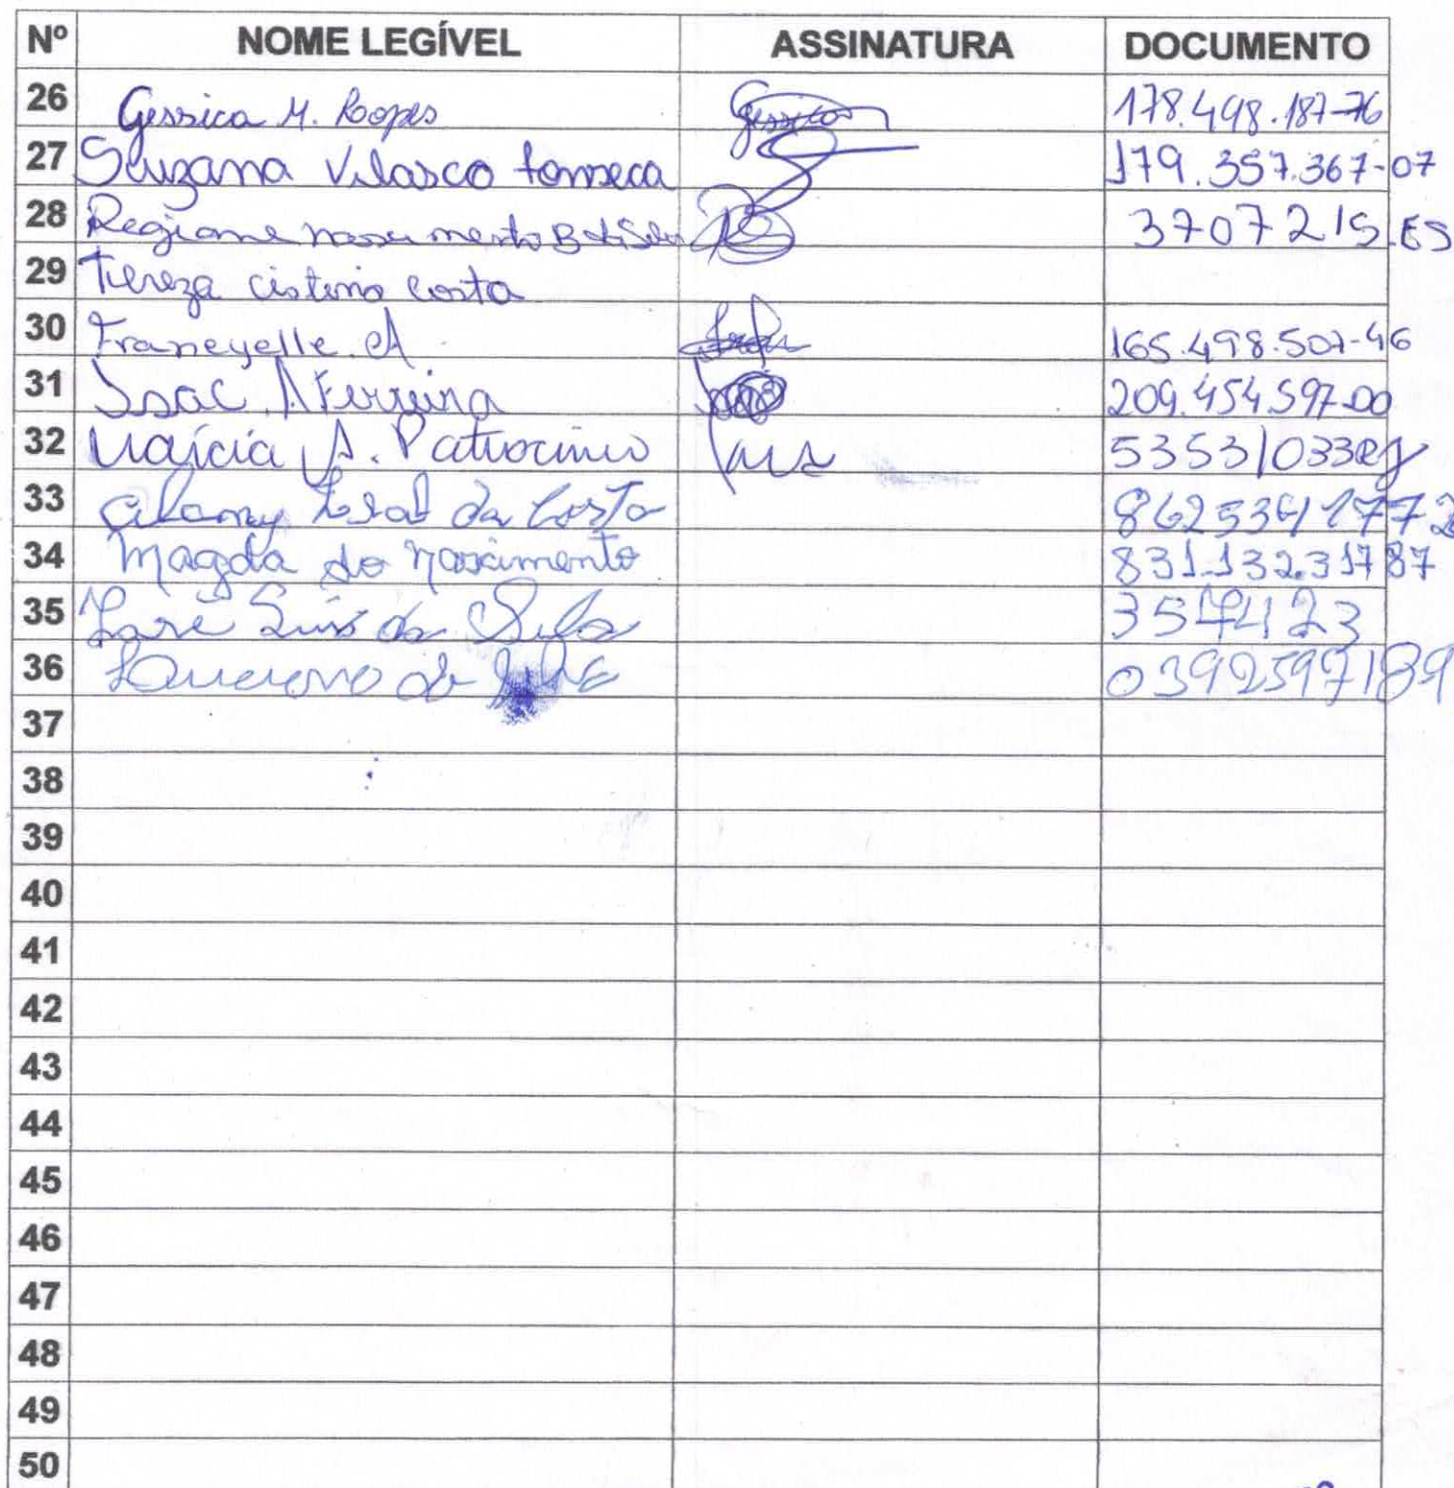 Nº NOME LEGÍVEL ASSINATURA DOCUMENTO
26 Gessica M. Lopes Gessica 178.498.187-76
27 Suzana Velasco Fonseca 179.357.367-07
28 Regiane 3707215.ES
29 Tereza costa
30 Franeyelle. A 165.498.507-46
31 Isac. A Ferreira 209.454.597-00
32 A. Patrocinio 53531033RJ
33 Leal da Costa
34 Magda do Nascimento 831.132.31787
35 José Luis da Silva 3574423
36 de 0392597189
37
38
39
40
41
42
43
44
45
46
47
48
49
50